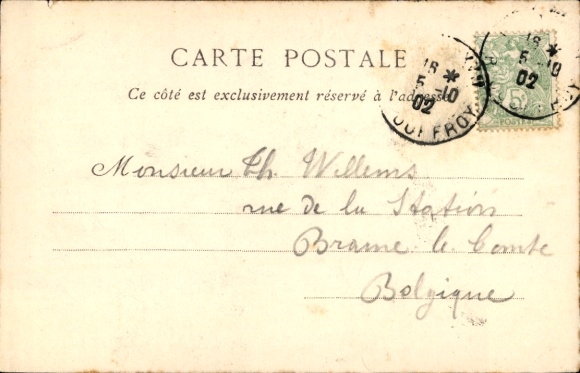 CARTE POSTALE
Ce côté est exclusivement réservé à l'adresse
16 *
5 -10
02
JOUFFROY
16 *
5 -10
02
5c
POSTES
Monsieur Th. Willems
rue de la Station
Braine le Comte
Belgique